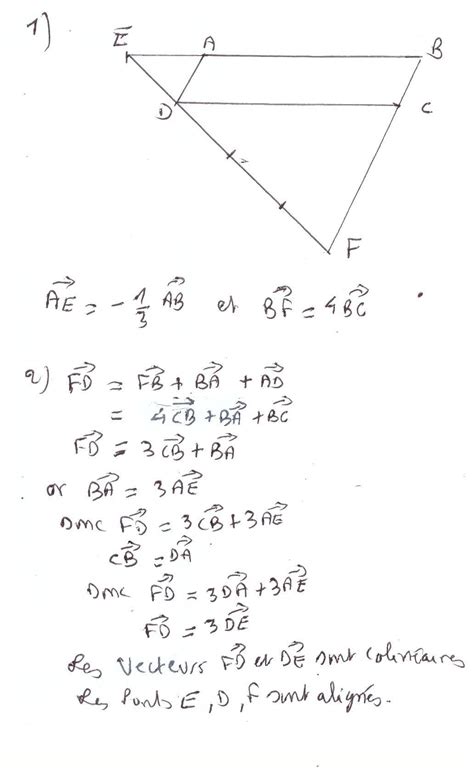 1)
E A B
D C
F
$\overrightarrow{AE} = -\frac{1}{3} \overrightarrow{AB}$ et $\overrightarrow{BF} = 4\overrightarrow{BC}$
2) $\overrightarrow{FD} = \overrightarrow{FB} + \overrightarrow{BA} + \overrightarrow{AD}$
$= 4\overrightarrow{CB} + \overrightarrow{BA} + \overrightarrow{BC}$
$\overrightarrow{FD} = 3\overrightarrow{CB} + \overrightarrow{BA}$
or $\overrightarrow{BA} = 3\overrightarrow{AE}$
Donc $\overrightarrow{FD} = 3\overrightarrow{CB} + 3\overrightarrow{AE}$
$\overrightarrow{CB} = \overrightarrow{DA}$
Donc $\overrightarrow{FD} = 3\overrightarrow{DA} + 3\overrightarrow{AE}$
$\overrightarrow{FD} = 3\overrightarrow{DE}$
Les Vecteurs $\overrightarrow{FD}$ et $\overrightarrow{DE}$ sont colinéaires
Les Points E, D, F sont alignés.